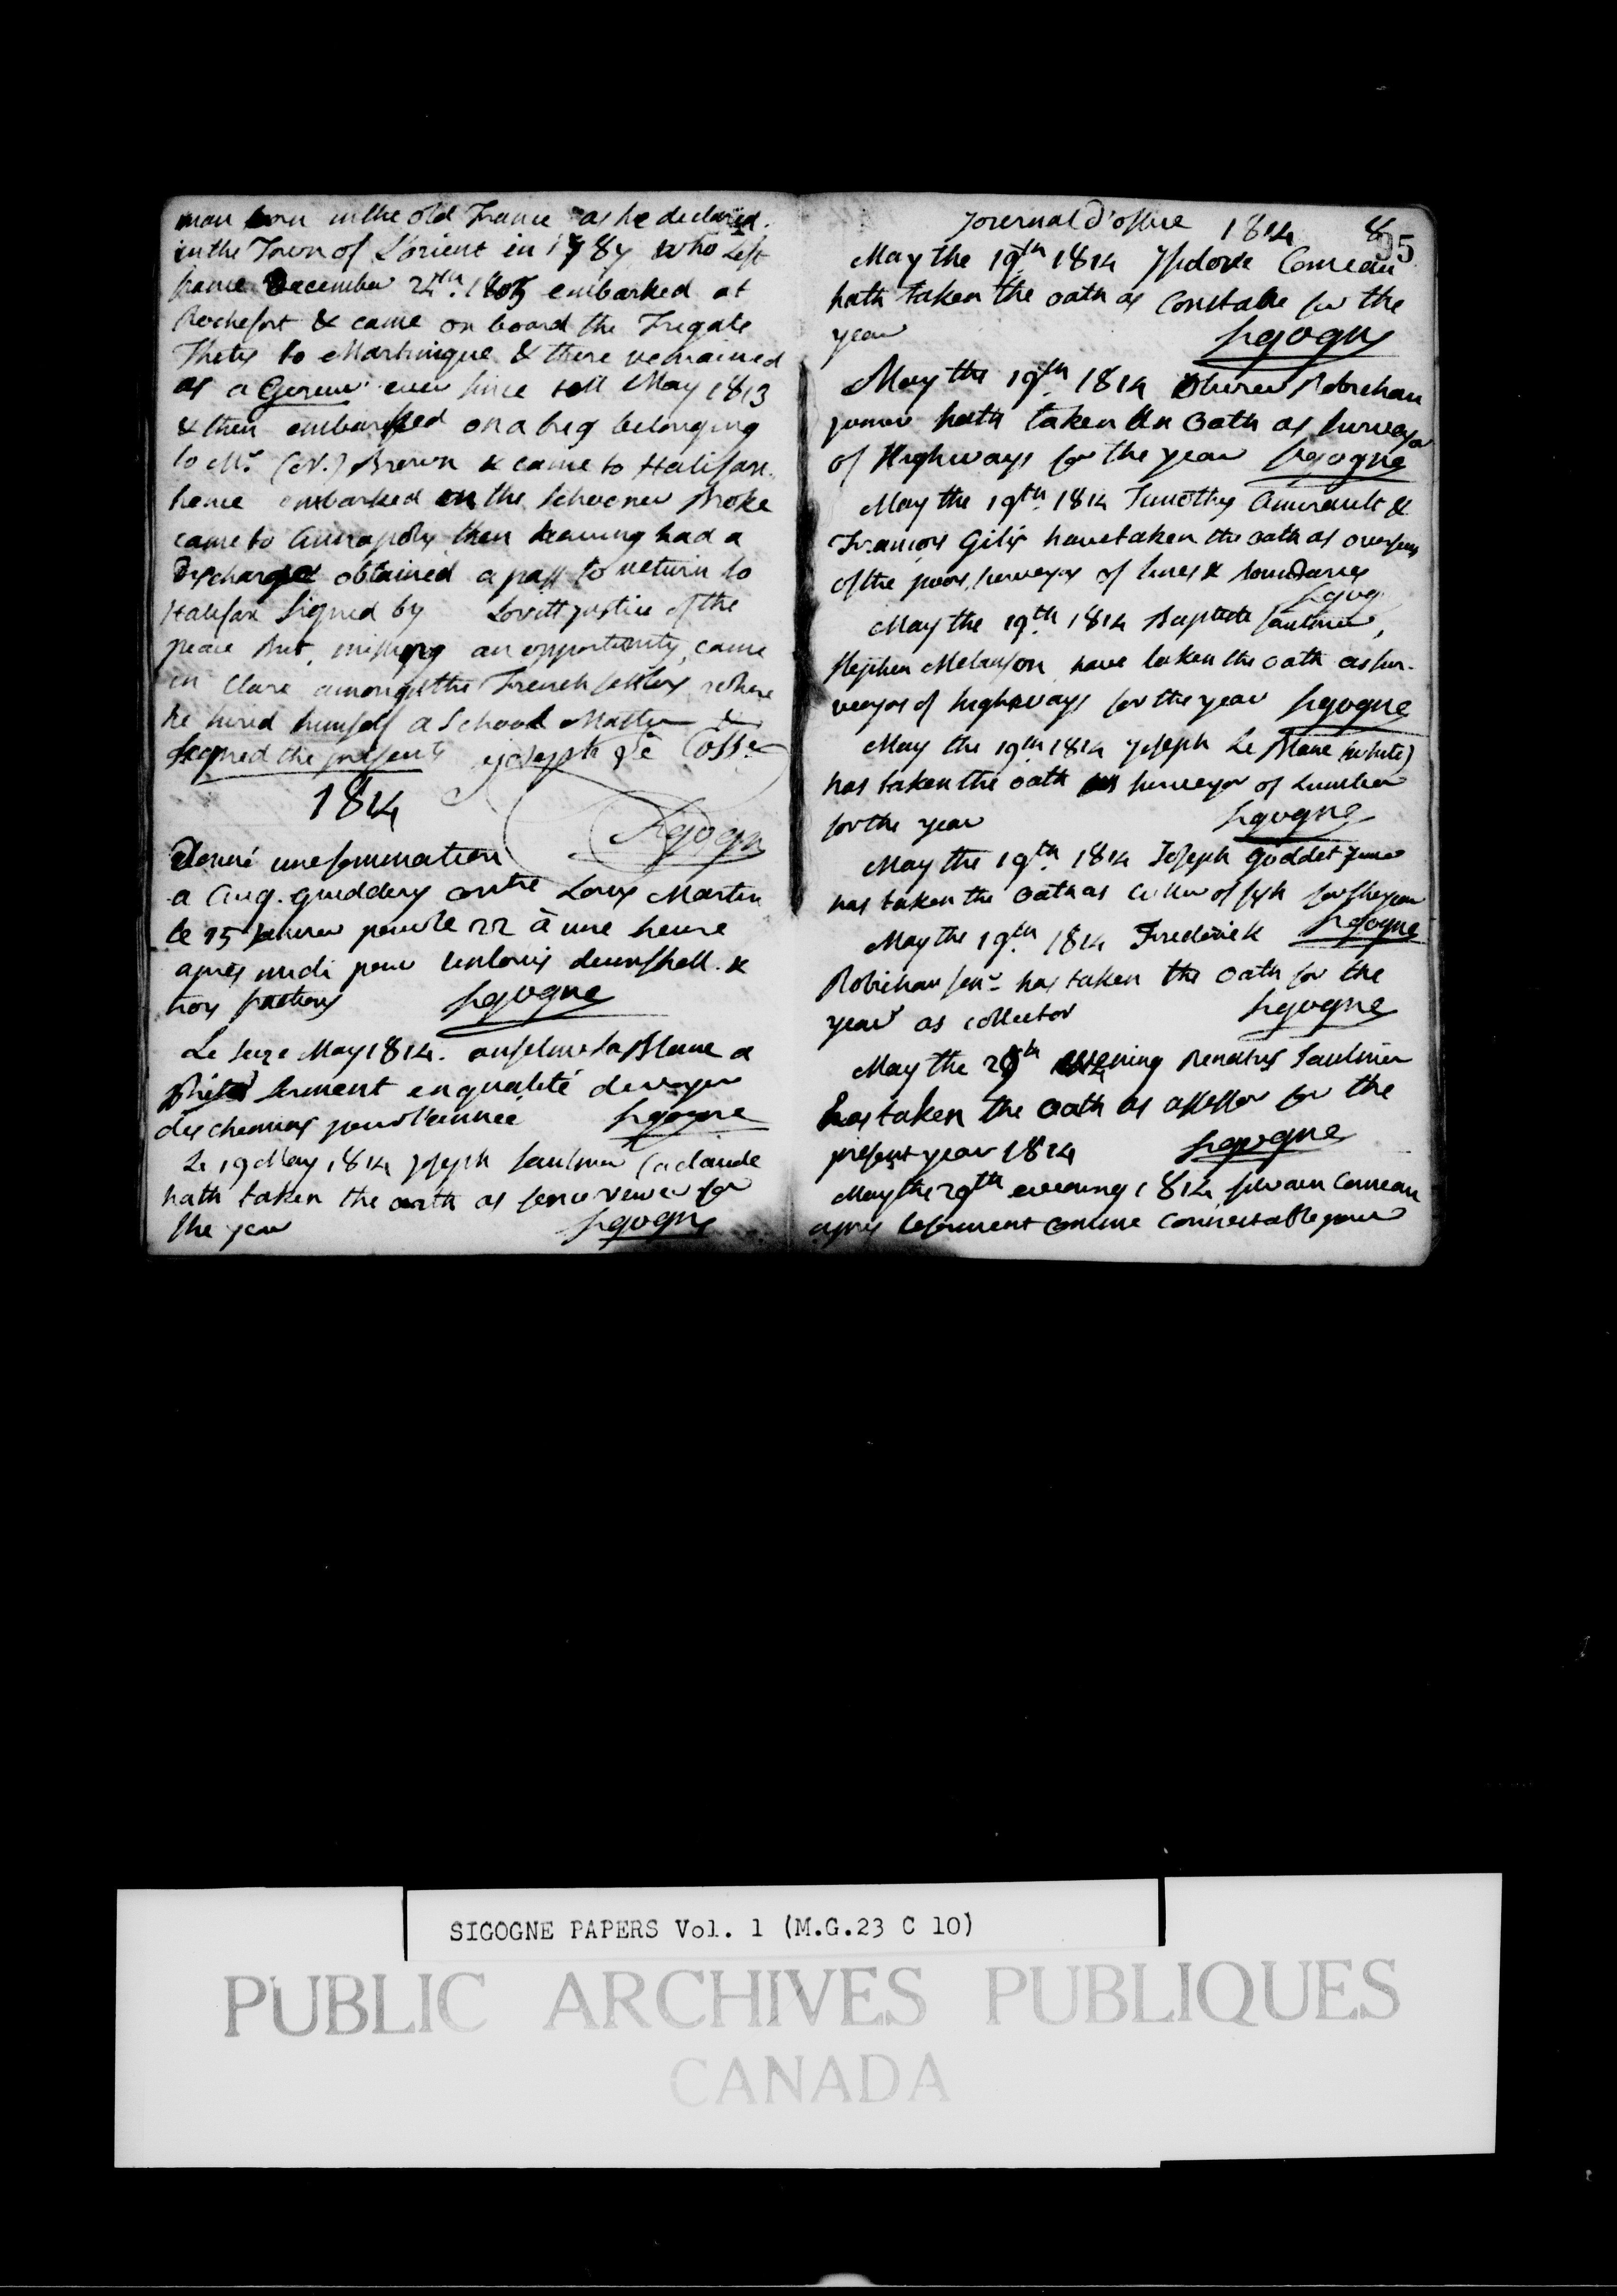 man born in the old France as he declared.
in the Town of L'orient in 1787 who Left
france December 24th. 1805 embarked at
Rochefort & came on board the Fregate
Thetis to Martinique & there remained
as a Gereur ever since till May 1813
& then embarked on a breg belonging
to Mr. (N.) Brown & came to Halifax.
hence embarked on the Schooner Broke
came to Annapolis then having had a
Discharge obtained a pass to return to
Halifax Signed by Lovitt justice of the
peace But, missing an opportunity, came
in Clare amongst the French settlers where
he hired himself a School Master &
signed the presents Joseph
1814
Sigogn
Donné une sommation
a Aug. guiddery contre Louis Martin
le 15 pour le 22 à une heure
après midi pour un louis deux shell. &
trois
Sigogne
Le seize May 1814. anselme La Blanc a
Prêté serment en qualité de voyer
des chemins pour l'année Sigogne
Le 19 May 1814 Joseph Saulnier (a claude
hath taken the oath as fence viewer for
the year Sigogne
Journal d'office 1814 8
95
May the 19th 1814 Ysidore Comeau
hath taken the oath as Constable for the
year Sigogne
May the 19th. 1814 Robichau
junior hath taken the Oath as Surveyor
of Highways for the year Sigogne
May the 19th. 1814 Timothy Amirault &
François Gilis have taken the oath as overseers
of the poor, surveyors of lines & boundaries
Sigog.
May the 19th. 1814 Baptiste Saulnier,
Stephen Melanson have taken the oath as sur-
veyors of highways for the year Sigogne
May the 19th 1814 Joseph Le Blanc (white)
has taken the oath as surveyor of Lumber
for the year Sigogne
May the 19th. 1814 Joseph Goddet junior
has taken the Oath as Culler of fish for the year
Sigogne
May the 19th. 1814 Frederick
Robichau senr has taken the Oath for the
year as collector Sigogne
May the 29th evening Renatus Saulnier
has taken the Oath as assessor for the
present year 1814 Sigogne
May the 29th evening 1814 silvain Comeau
a pris le serment comme connestable pour
SIGOGNE PAPERS Vol. 1 (M.G.23 C 10)
PUBLIC ARCHIVES PUBLIQUES
CANADA